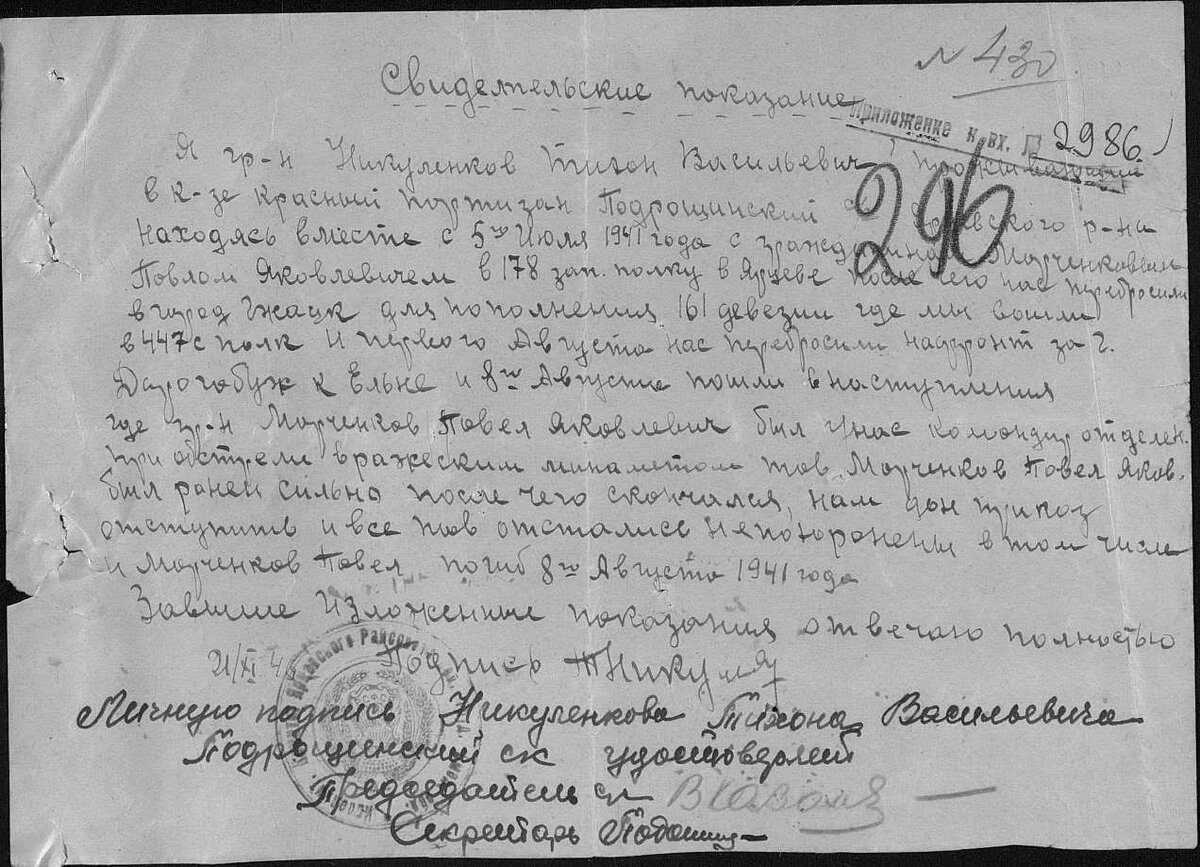 N 430
Свидетельские показание
Приложение к вх. П 2986
296
Я гр-н Никуленков Тихон Васильевич
в к-зе красный портизан Подрощинский р-на
Находясь вместе с 5го Июля 1941 года с Морченковым
Повлом Яковлевичем в 178 зап. полку в Ярцеве после чего нас перебросили
в город Гжатск для пополнения 161 девезии где мы вошли
в 447 с полк И первого Августа нас перебросили на фронт за г.
Дорогобуж к Ельне и 8го Августа пошли в наступления
где гр-н Морченков Повел Яковлевич был у нас командир отделен.
При обстрели вражеским минаметом тов. Морченков Повел Яков.
был ранен сильно после чего скончался, нам дон прикоз
отступить и все тов отстались непохоронены в том числе
и Морченков Повел погиб 8го Августа 1941 года
За выше Изложенные показания отвечаю полностью
21/XI 4 Подпись ТНикул
Личную подпись Никуленкова Тихона Васильевича
Подрощинский ск удостоверяй
Председатель
Секретарь